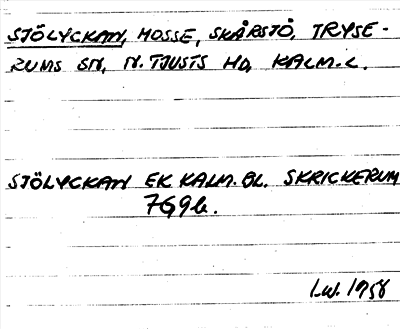 STÖLYCKAN, MOSSE, SKÅRSTÖ, TRYSE-
RUMS SN, N. TJUSTS HD, KALM.L.
STÖLYCKAN EK KALM.BL. SKRICKERUM
7G9b.
I.W. 1958